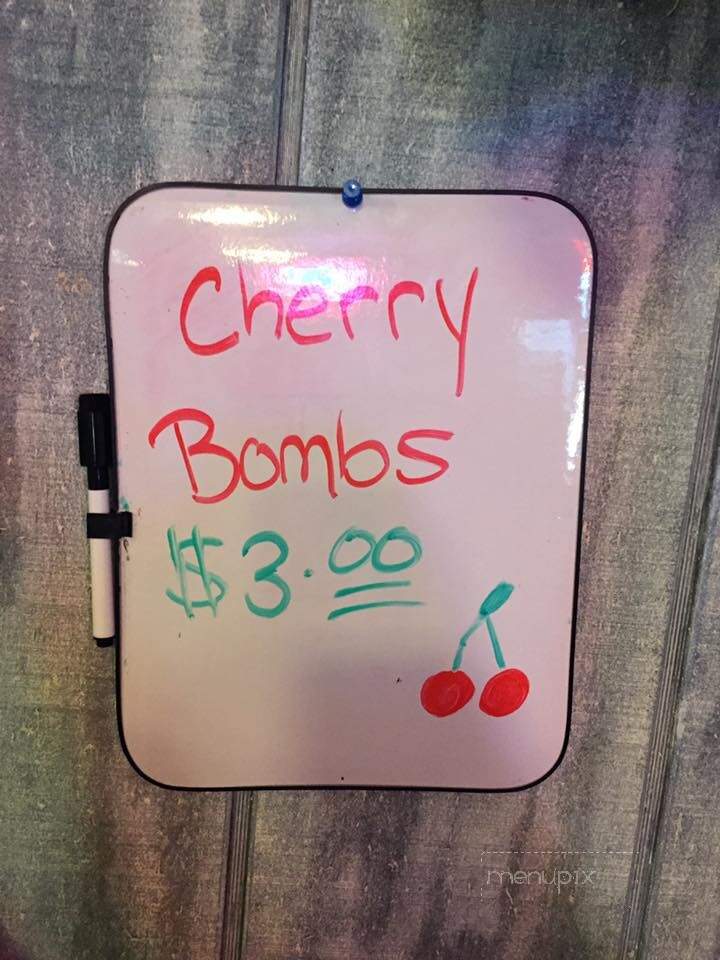 Cherry
Bombs
$3.00
menupix